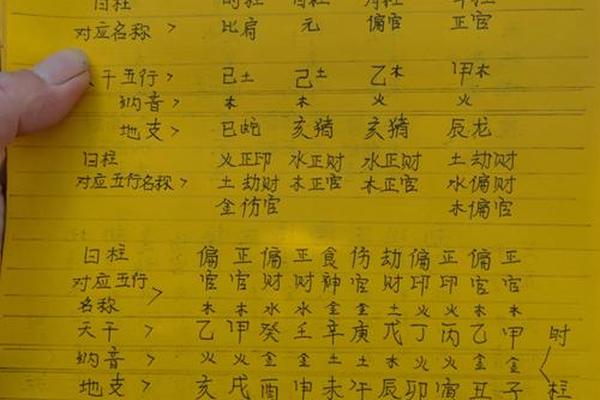 日柱
对应名称> 比肩 元 偏官 正官
干五行> 已土 己土 乙木 甲木
纳音> 木 木 火 火
地支> 巳蛇 亥猪 亥猪 辰龙
日柱 火正印 水正财 水正财 土劫财
对应五行名称> 土劫财 木正官 木正官 水偏财
金伤官 木偏官
日柱 偏 正 偏 正 食 伤 劫 偏 正 偏 正
对应五行 > 官 官 财 财 神 官 财 印 印 官 官
名称 木 木 水 水 金 金 土 火 火 木 木
天干 > 乙 甲 癸 壬 辛 庚 戊 丁 丙 乙 甲 时
纳音 > 火 火 金 金 土 土 木 火 火 金 金
地支 > 亥 戌 酉 申 未 午 辰 卯 寅 丑 子 柱